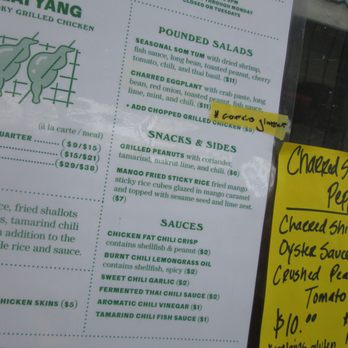 AI YANG
KY GRILLED CHICKEN
(à la carte / meal)
UARTER
($9/$15)
($15/$21)
($29/$38)
ce, fried shallots
s, tamarind chili
n addition to the
de rice and sauce.
HICKEN SKINS ($5)
THROUGH MONDAY
CLOSED ON TUESDAYS
POUNDED SALADS
SEASONAL SOM TUM with dried shrimp,
fish sauce, long bean, toasted peanut, cherry
tomato, chili, and thai basil. ($11)
CHARRED EGGPLANT with crab paste, long
bean, red onion, toasted peanut, fish sauce,
lime, mint, and chili. ($11)
+ ADD CHOPPED GRILLED CHICKEN ($5)
SNACKS & SIDES
GRILLED PEANUTS with coriander,
tamarind, makrut lime, and chili. ($6)
MANGO FRIED STICKY RICE fried mango
sticky rice cubes glazed in mango caramel
and topped with sesame seed and lime zest.
($7)
SAUCES
CHICKEN FAT CHILI CRISP
contains shellfish & peanut ($2)
BURNT CHILI LEMONGRASS OIL
contains shellfish, spicy ($2)
SWEET CHILI GARLIC ($2)
FERMENTED THAI CHILI SAUCE ($2)
AROMATIC CHILI VINEGAR ($1)
TAMARIND CHILI FISH SAUCE ($1)
Charred Sh
Pep
Charred Shi
Oyster Sauce
Crushed Pea
Tomato
$10.00